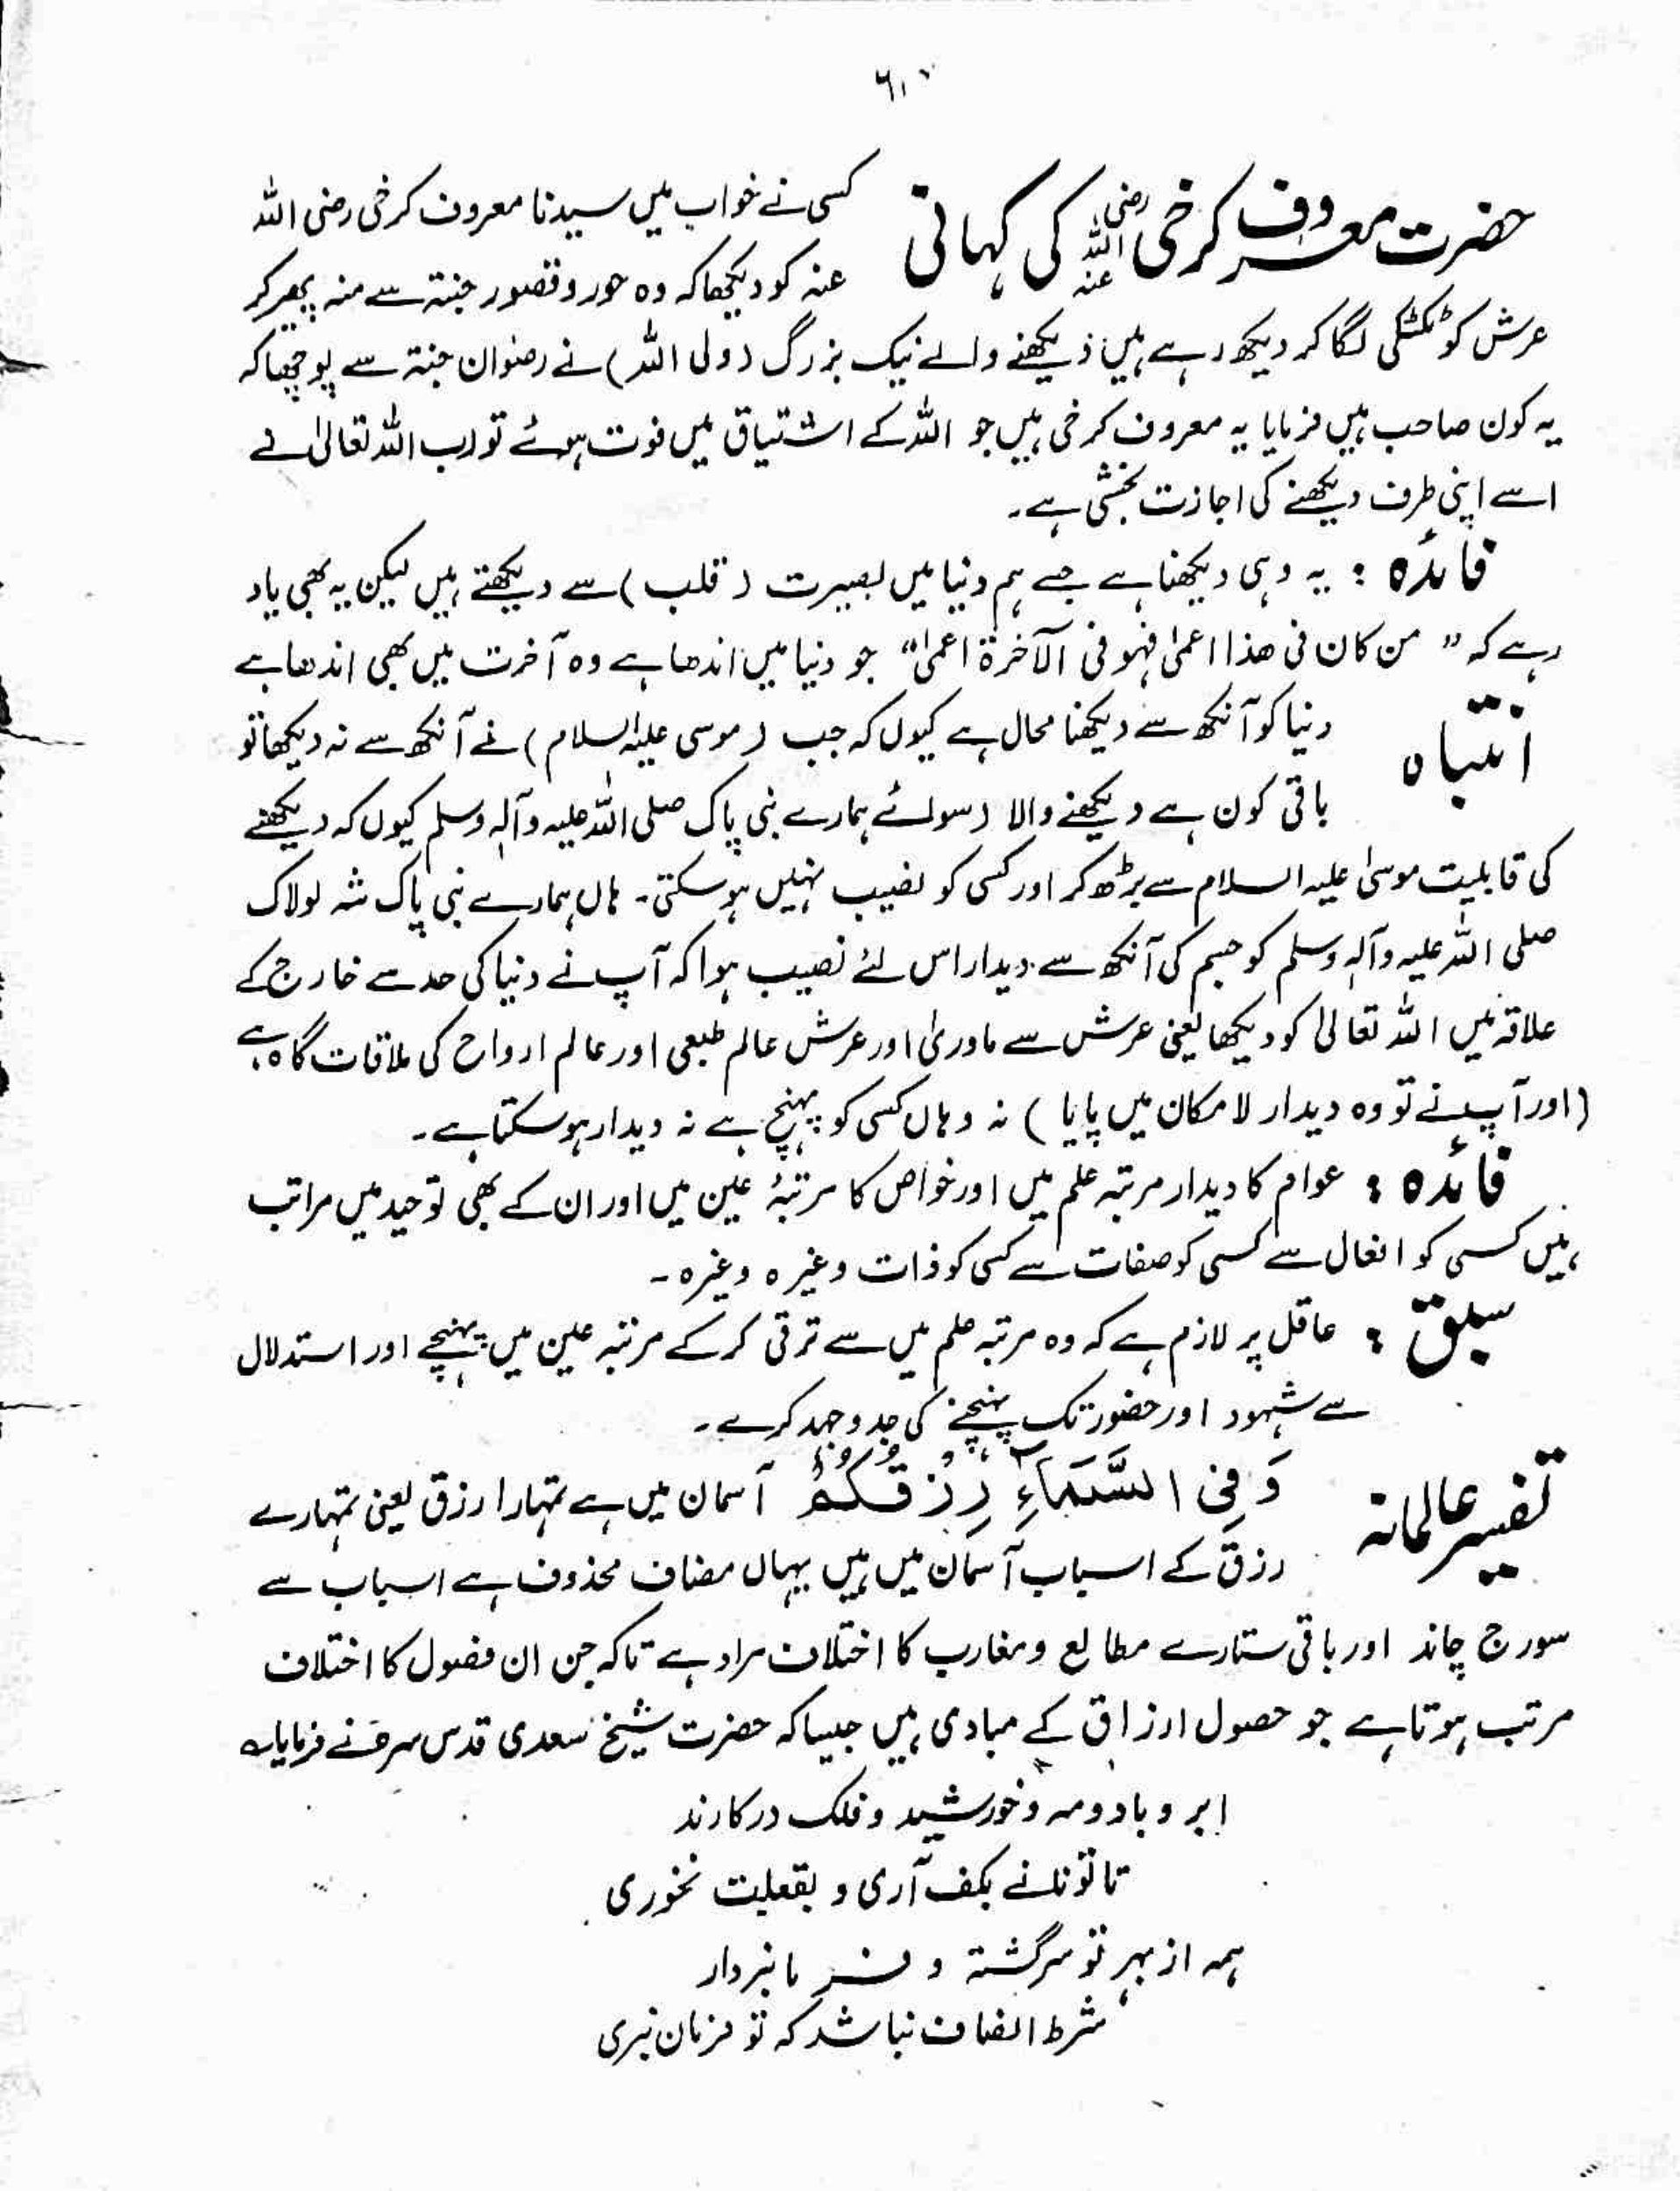 حضرت معروف کرخی رضی اللہ عنہ کی کہانی
کسی نے خواب میں سیدنا معروف کرخی رضی اللہ
عنہ کو دیکھا کہ وہ حور و قصور جنتہ سے منہ پھیر کر
عرش کو ٹکٹکی لگا کر دیکھ رہے ہیں دیکھنے والے نیک بزرگ (ولی اللہ) نے رضوان جنتہ سے پوچھا کہ
یہ کون صاحب ہیں فرمایا یہ معروف کرخی ہیں جو اللہ کے اشتیاق میں فوت ہوئے تو اب اللہ تعالیٰ نے
اسے اپنی طرف دیکھنے کی اجازت بخشی ہے۔
فائدہ : یہ وہی دیکھنا ہے جسے ہم دنیا میں بصیرت (قلب) سے دیکھتے ہیں لیکن یہ بھی یاد
رہے کہ " من کان فی ھذا اعمیٰ فہو فی الآخرۃ اعمیٰ" جو دنیا میں اندھا ہے وہ آخرت میں بھی اندھا ہے
انتباہ
دنیا کو آنکھ سے دیکھنا محال ہے کیوں کہ جب (موسی علیہ السلام) نے آنکھ سے نہ دیکھا تو
باقی کون ہے دیکھنے والا (سوائے ہمارے نبی پاک صلی اللہ علیہ وآلہ وسلم کیوں کہ دیکھنے
کی قابلیت موسیٰ علیہ السلام سے بڑھ کر اور کسی کو نصیب نہیں ہو سکتی۔ ہاں ہمارے نبی پاک شہ لولاک
صلی اللہ علیہ وآلہ وسلم کو جسم کی آنکھ سے دیدار اس لئے نصیب ہوا کہ آپ نے دنیا کی حد سے خارج کے
علاقہ میں اللہ تعالیٰ کو دیکھا یعنی عرش سے ماوریٰ اور عرش عالم طبعی اور عالم ارواح کی ملاقات گاہ ہے
(اور آپ نے تو وہ دیدار لامکان میں پایا) نہ وہاں کسی کو پہنچ ہے نہ دیدار ہو سکتا ہے۔
فائدہ : عوام کا دیدار مرتبہ علم میں اور خواص کا مرتبۂ عین میں اور ان کے بھی توحید میں مراتب
ہیں کسی کو افعال سے کسی کو صفات سے کسی کو ذات وغیرہ وغیرہ۔
سبق : عاقل پر لازم ہے کہ وہ مرتبہ علم میں سے ترقی کر کے مرتبہ عین میں پہنچے اور استدلال
سے شہود اور حضور تک پہنچنے کی جدوجہد کرے۔
تفسیر عالمانہ
وَفِی السَّمَآءِ رِزْقُکُمْ آسمان میں ہے تمہارا رزق یعنی تمہارے
رزق کے اسباب آسمان میں ہیں یہاں مضاف محذوف ہے اسباب سے
سورج چاند اور باقی ستارے مطالع ومغارب کا اختلاف مراد ہے تاکہ جن ان فصول کا اختلاف
مرتب ہوتا ہے جو حصول ارزاق کے مبادی ہیں جیسا کہ حضرت شیخ سعدی قدس سرہ نے فرمایا؎
ابر و باد و مہ و خورشید و فلک درکارند
تا تو نانے بکف آری و بغفلت نخوری
ہمہ از بہر تو سرگشتہ و فرمانبردار
شرط انصاف نباشد کہ تو فرمان نبری